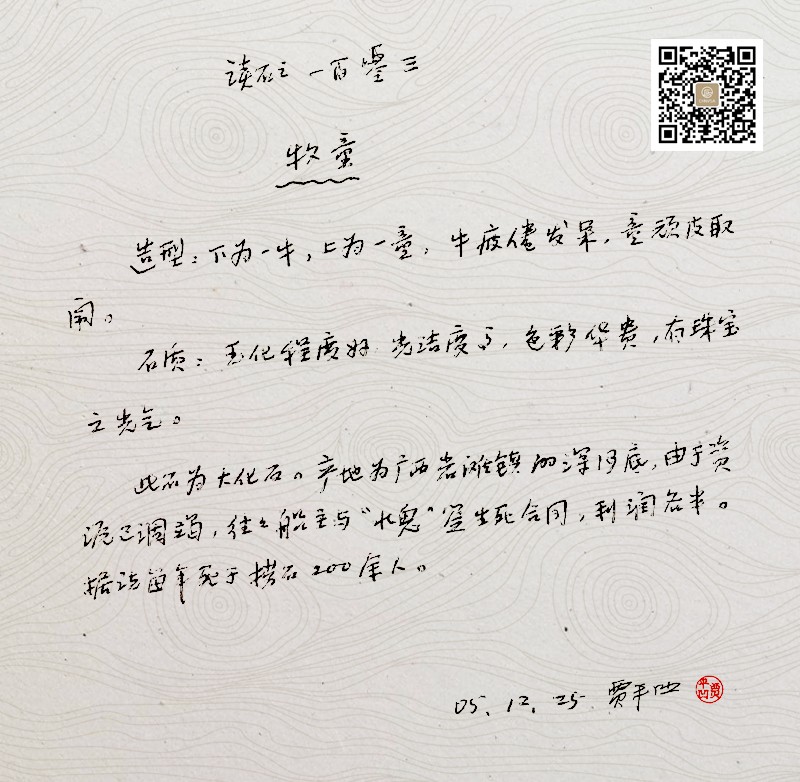 读石之 一百 三
牧童
造型：下为一牛，上为一童，牛疲倦发呆，童顽皮取
闹。
石质：玉化程度好 光洁度高，色彩华贵，有珠宝
之光气。
此石为大化石。产地为广西岩滩镇的深河底，由于资
源已调竭，往往船主与“水鬼”签生死合同，利润各半。
据说每年死于捞石200余人。
05.12.25 贾平凹
贾平凹